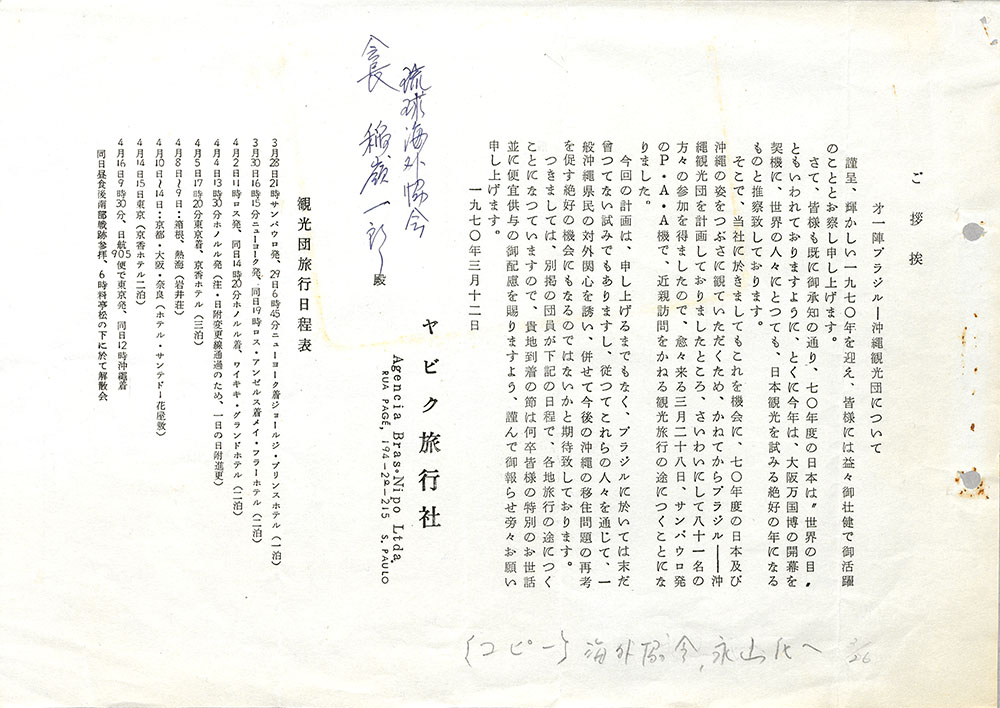 ご挨拶
才一陣ブラジル―沖縄観光団について
謹呈、輝かしい一九七〇年を迎え、皆様には益々御壮健で御活躍
のこととお察し申し上げます。
さて、皆様も既に御承知の通り、七〇年度の日本は〃世界の目〃
ともいわれておりますように、とくに今年は、大阪万国博の開幕を
契機に、世界の人々にとつても、日本観光を試みる絶好の年になる
ものと推察致しております。
そこで、当社に於きましてもこれを機会に、七〇年度の日本及び
沖縄の姿をつぶさに観ていただくため、かねてからブラジル――沖
縄観光団を計画しておりましたところ、さいわいにして八十一名の
方々の参加を得ましたので、愈々来る三月二十八日、サンパウロ発
のP・A・A機で、近親訪問をかねる観光旅行の途につくことにな
りました。
今回の計画は、申し上げるまでもなく、ブラジルに於いては末だ
曾つてない試みでもありますし、従つてこれらの人々を通じて、一
般沖縄県民の対外関心を誘い、併せて今後の沖縄の移住問題の再考
を促す絶好の機会にもなるのではないかと期待致しております。
つきましては、別掲の団員が下記の日程で、各地旅行の途につく
ことになつていますので、貴地到着の節は何卒皆様の特別のお世話
並に便宜供与の御配慮を賜りますよう、謹んで御報らせ旁々お願い
申し上げます。
一九七〇年三月十二日
ヤビク旅行社
Agencia Bras-Nipo Ltda.
RUA PAGÉ, 194-2º-215 S. PAULO
琉球海外協会
会長 稲嶺一郎殿
観光団旅行日程表
3月28日21時サンパウロ発、29日6時45分ニューヨーク着ジョールジ・プリンスホテル(一泊)
3月30日16時15分ニューヨーク発、同日19時ロス・アンゼルス着メイ・フラーホテル(二泊)
4月2日11時ロス発、同日14時20分ホノルル着、ワイキキ・グランドホテル(二泊)
4月4日13時30分ホノルル発(注・日附変更線通過のため、一日の日附進更)
4月5日17時20分東京着、京香ホテル(三泊)
4月8日~9日:箱根、熱海(岩井荘)
4月10日~14日:京都・大阪・奈良(ホテル・サンテドー花屋敷)
4月14日15日東京(京香ホテル二泊)
4月16日9時30分、日航905便で東京発、同日12時沖縄着
同日昼食後南部戦跡参拝、6時料亭松の下に於て解散会
{コピー} 海外協会、永山氏へ
3/26